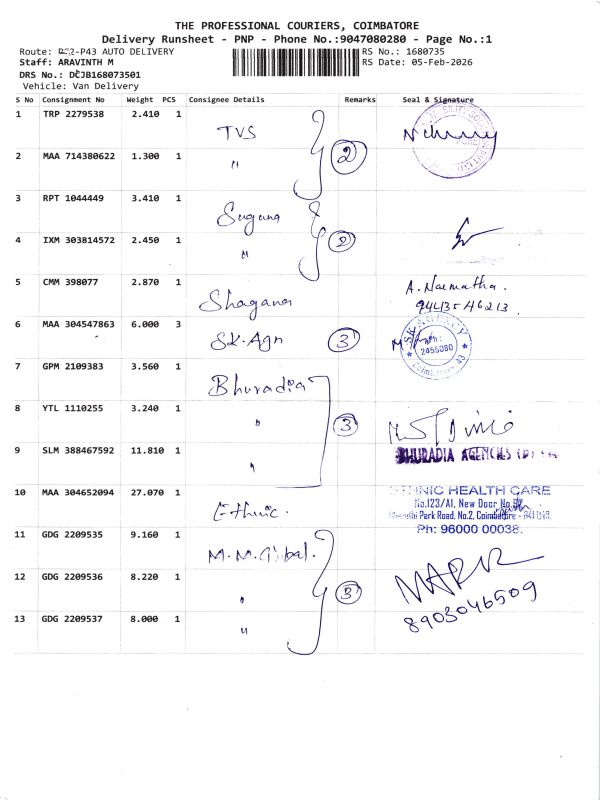 THE PROFESSIONAL COURIERS, COIMBATORE
Delivery Runsheet - PNP - Phone No.:9047080280 - Page No.:1
Route: P43 AUTO DELIVERY
RS No.: 1680735
Staff: ARAVINTH M
RS Date: 05-Feb-2026
DRS No.: DCJB168073501
Vehicle: Van Delivery
S No Consignment No Weight PCS Consignee Details Remarks Seal & Signature
1 TRP 2279538 2.410 1 TVS
2 MAA 714380622 1.300 1 " 2
3 RPT 1044449 3.410 1 Suguna
4 IXM 303814572 2.450 1 " 2
5 CMM 398077 2.870 1 Shagana A. Namratha.
94435 46213
6 MAA 304547863 6.000 3 SK. Agn 3 SK AGENCY
Ph: 2455080
Coimbatore 43
7 GPM 2109383 3.560 1 Bhuradia
8 YTL 1110255 3.240 1 " 3
9 SLM 388467592 11.810 1 " BHURADIA AGENCIES
10 MAA 304652094 27.070 1 Ethnic. ETHNIC HEALTH CARE
No.123/A1, New Door No.
Park Road, No.2, Coimbatore -
Ph: 96000 00038.
11 GDG 2209535 9.160 1 M.M. Global.
12 GDG 2209536 8.220 1 " 3
8903046509
13 GDG 2209537 8.000 1 "